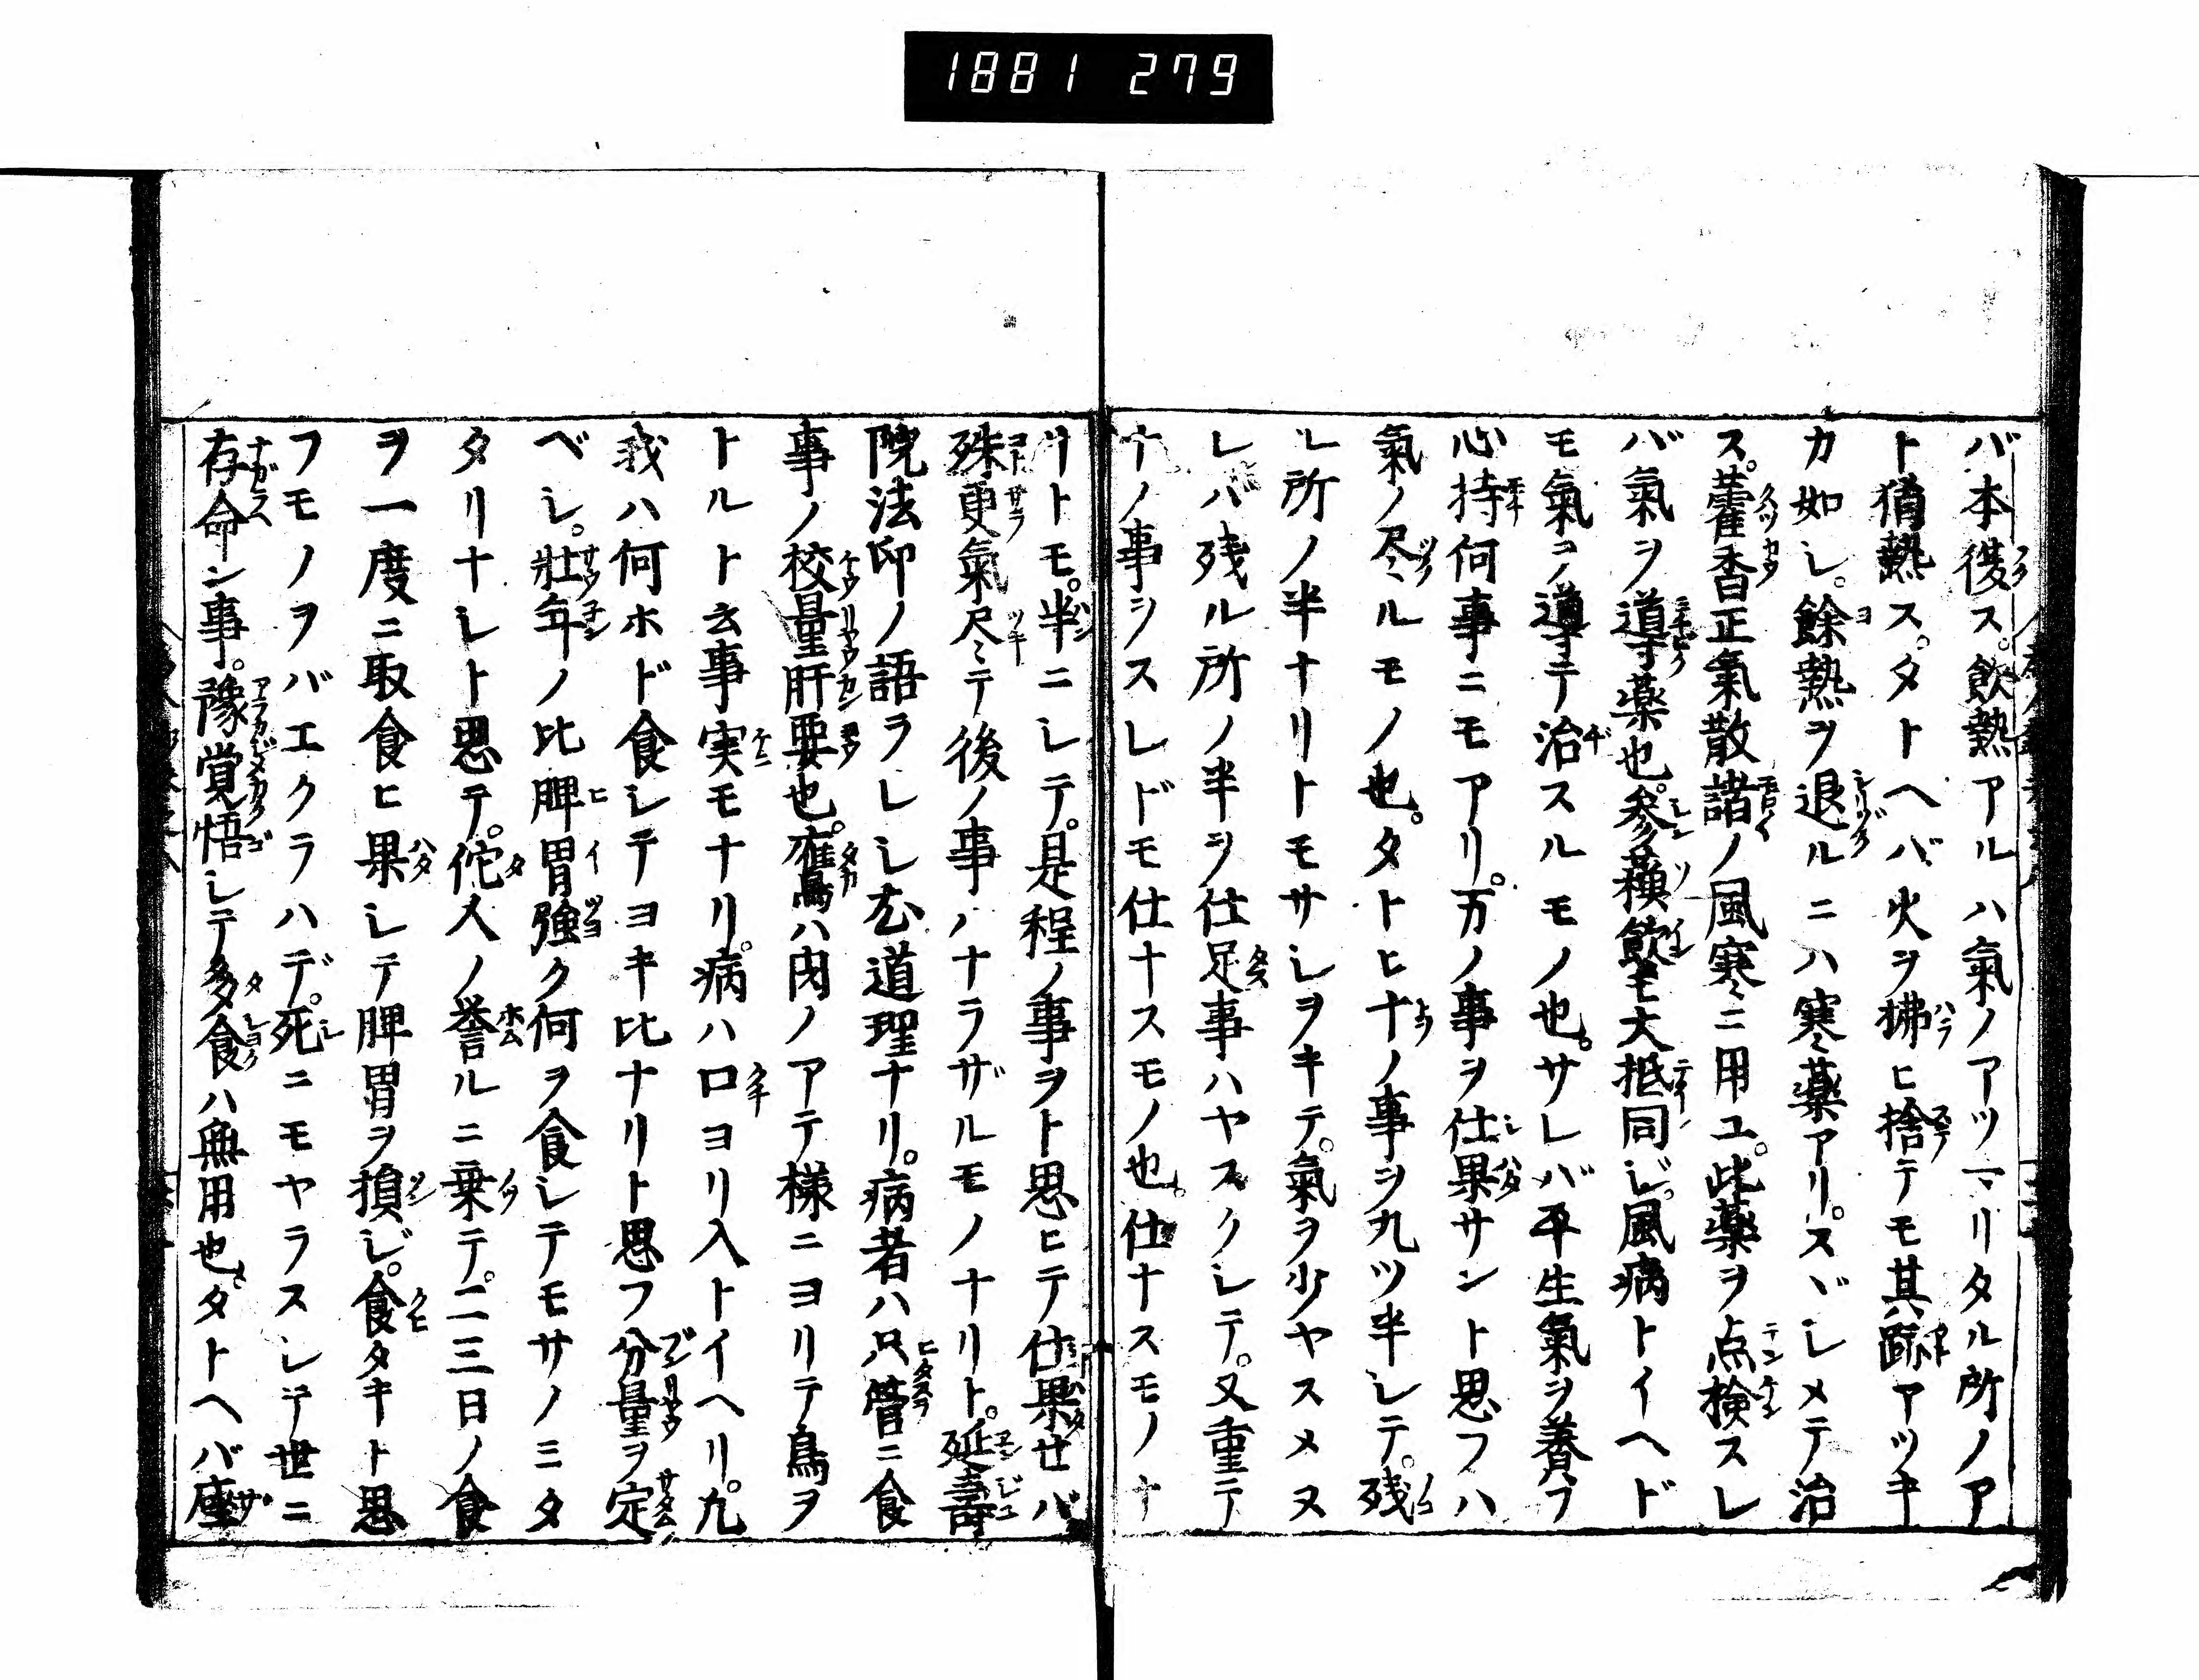 1881 279
バ本復ス。飲熱アルハ氣ノアツマリタル所ノア
ト猶熱ス。タトヘバ火ヲ拂ヒ捨テモ其跡アツキ
カ如シ。餘熱ヲ退ルニハ寒薬アリ。スヾシメテ治
ス。藿香正氣散諸ノ風寒ニ用ユ。此薬ヲ点検スレ
バ氣ヲ導薬也。参蘓飲モ大抵同ジ。風病トイヘド
モ氣ヲ導テ治スルモノ也。サレバ平生氣ヲ養フ
心持何事ニモアリ。万ノ事ヲ仕果サント思フハ
氣ノ尽ルモノ也。タトヒ十ノ事ヲ九ツ半シテ。残
レ所ノ半ナリトモサシヲキテ。氣ヲ少ヤスメヌ
レバ残ル所ノ半ヲ仕足事ハヤスクシテ。又重テ
ナノ事ヲスレドモ仕ナスモノ也。仕ナスモノナ
リトモ。半ニシテ。是程ノ事ヲト思ヒテ仕果せバ
殊更氣尽テ後ノ事ハナラザルモノナリト。延壽
院法印ノ語ラレシ尤道理ナリ。病者ハ只管ニ食
事ノ校量肝要也。鷹ハ肉ノアテ様ニヨリテ鳥ヲ
トルト云事実モナリ。病ハ口ヨリ入トイヘリ。九
我ハ何ホド食シテヨキ比ナリト思フ分量ヲ定
ベシ。壯年ノ比脾胃強ク何ヲ食シテモサノミタ
タリナシト思テ。佗人ノ誉ルニ乗テ。二三日ノ食
ヲ一度ニ取食ヒ果シテ脾胃ヲ損ジ。食タキト思
フモノヲバエクラハデ。死ニモヤラスシテ世ニ
存命ン事。豫覚悟シテ多食ハ無用也。タトヘバ座